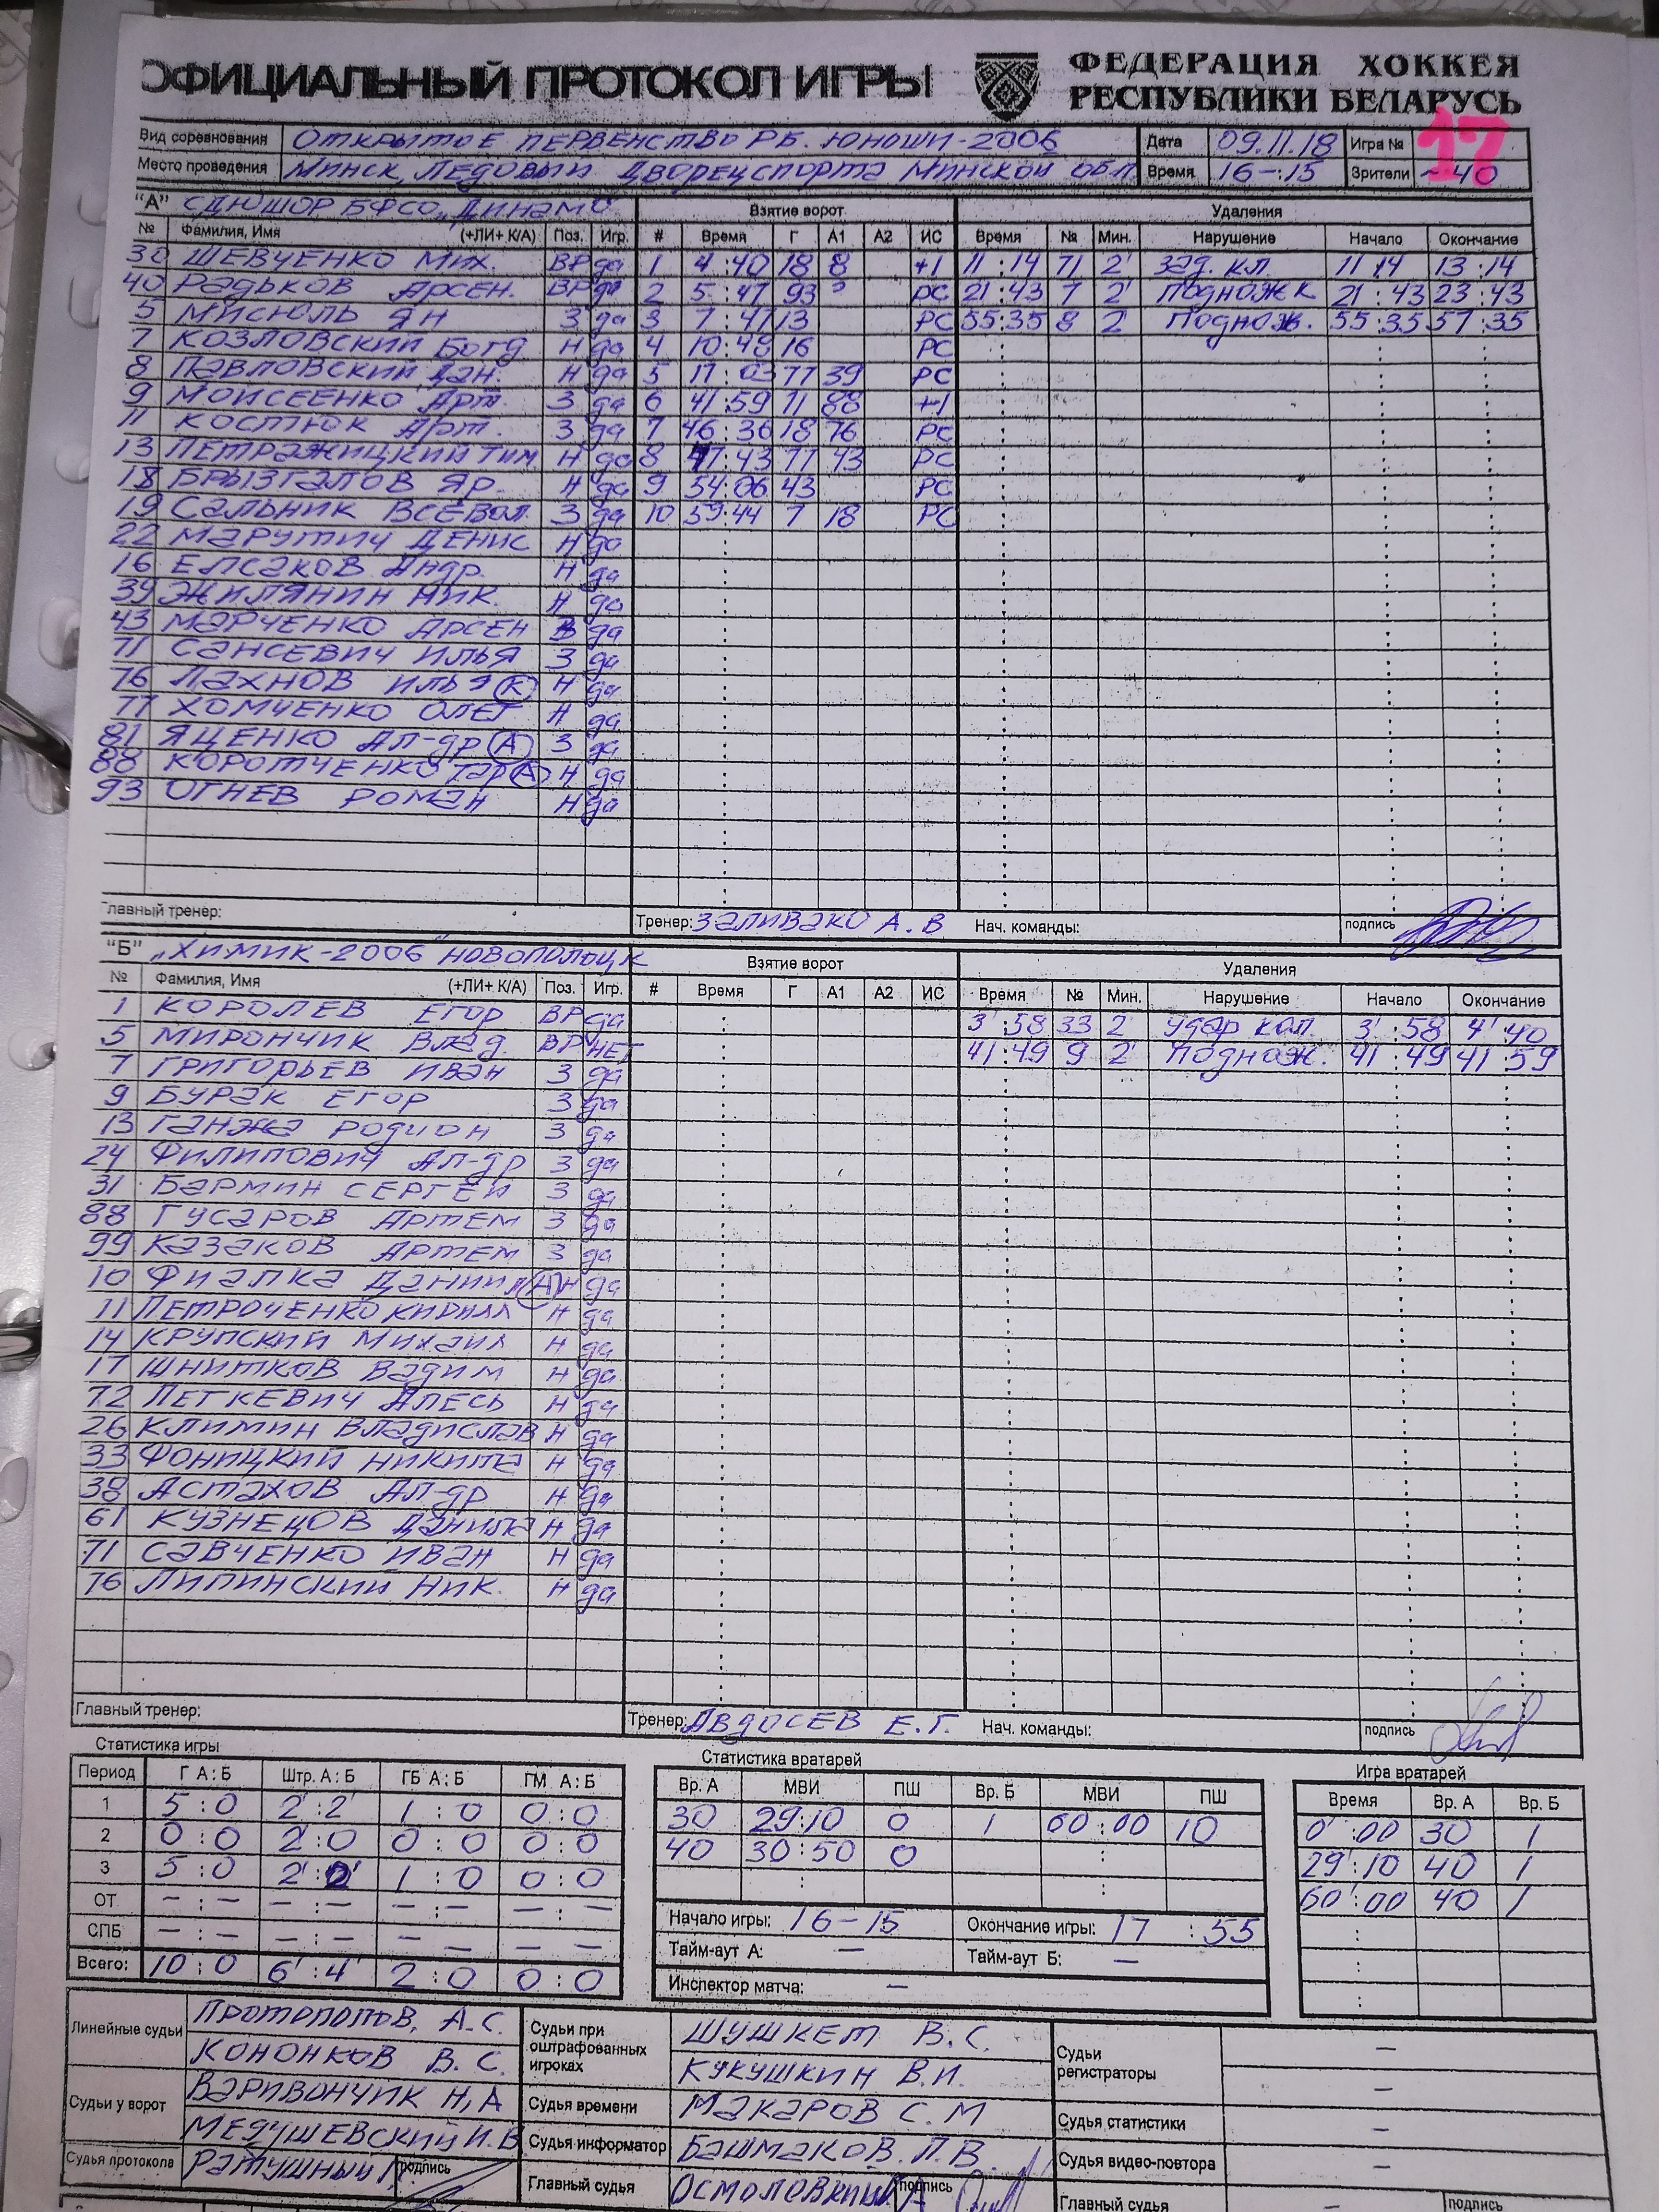 ОФИЦИАЛЬНЫЙ ПРОТОКОЛ ИГРЫ ФЕДЕРАЦИЯ ХОККЕЯ РЕСПУБЛИКИ БЕЛАРУСЬ
Вид соревнования ОТКРЫТОЕ ПЕРВЕНСТВО РБ. ЮНОШИ-2006 Дата 09.11.18 Игра № 17
Место проведения МИНСК, ЛЕДОВЫЙ ДВОРЕЦ СПОРТА МИНСКОЙ ОБЛ. Время 16-:15 Зрители ~40
"А" СДЮШОР БФСО "ДИНАМО Взятие ворот Удаления
№ Фамилия, Имя (+ЛИ+ К/А) Поз. Игр. # Время Г А1 А2 ИС Время № Мин. Нарушение Начало Окончание
30 ШЕВЧЕНКО МИХ. ВР да 1 4:40 18 8 +1 11:14 71 2' зад. кл. 11 14 13:14
40 РАДЬКОВ АРСЕН. ВР да 2 5:47 93 РС 21:43 7 2' ПОДНОЖК 21:43 23:43
5 МИСЮЛЬ ЯН З да 3 7:47 13 РС 55:35 8 2' ПОДНОЖ. 55:35 57:35
7 КОЗЛОВСКИЙ БОГД Н да 4 10:48 16 РС
8 ПАВЛОВСКИЙ ДАН. Н да 5 17:03 77 39 РС
9 МОИСЕЕНКО АРТ. З да 6 41:59 71 88 +1
11 КОСТЮК АРТ. З да 7 46:36 18 76 РС
13 ПЕТРАЖИЦКИЙ ТИМ Н да 8 47:43 77 43 РС
18 БРЫЗГАЛОВ ЯР. Н да 9 54:06 43 РС
19 САЛЬНИК ВСЕВОЛ. З да 10 59:44 7 18 РС
22 МАРУТИЧ ДЕНИС Н да
16 ЕЛСАКОВ АНДР. Н да
39 ЖИЛЯНИН НИК. Н да
43 МАРЧЕНКО АРСЕН да
71 САНСЕВИЧ ИЛЬЯ З да
76 ЛАХНОВ ИЛЬЯ К Н да
77 ХОМЧЕНКО ОЛЕГ Н да
81 ЯЦЕНКО АЛ-ДР А З да
88 КОРОТЧЕНКО ТАР А Н да
93 ОГНЕВ РОМАН Н да
Главный тренер: Тренер: ЗАЛИВАКО А.В Нач. команды: подпись
"Б" "ХИМИК-2006" НОВОПОЛОЦК Взятие ворот Удаления
№ Фамилия, Имя (+ЛИ+ К/А) Поз. Игр. # Время Г А1 А2 ИС Время № Мин. Нарушение Начало Окончание
1 КОРОЛЕВ ЕГОР ВР да 3':58 33 2' удар кол. 3':58 4':40
5 МИРОНЧИК ВЛАД. ВР НЕТ 41:49 9 2' ПОДНОЖ. 41:49 41:59
7 ГРИГОРЬЕВ ИВАН З да
9 БУРАК ЕГОР З да
13 ГАНЖА РОДИОН З да
24 ФИЛИПОВИЧ АЛ-ДР З да
31 БАРМИН СЕРГЕЙ З да
88 ГУСАРОВ АРТЕМ З да
99 КАЗАКОВ АРТЕМ З да
10 ФИАЛКА ДАНИИЛ А Н да
11 ПЕТРОЧЕНКО КИРИЛЛ Н да
14 КРУПСКИЙ МИХАИЛ Н да
17 ШНИТКОВ ВАДИМ Н да
72 ЛЕТКЕВИЧ АЛЕСЬ Н да
26 КЛИМИН ВЛАДИСЛАВ Н да
33 ФОНИЦКИЙ НИКИТА Н да
38 АСТАХОВ АЛ-ДР Н да
61 КУЗНЕЦОВ ДАНИЛА Н да
71 САВЧЕНКО ИВАН Н да
76 ЛИПИНСКИЙ НИК. Н да
Главный тренер: Тренер: АВДОСЕВ Е.Г. Нач. команды: подпись
Статистика игры Статистика вратарей Игра вратарей
Период Г А : Б Штр. А : Б ГБ А : Б ГМ А : Б Вр. А МВИ ПШ Вр. Б МВИ ПШ Время Вр. А Вр. Б
1 5:0 2':2' 1:0 0:0 30 29:10 0 1 60:00 10 0':00 30 1
2 0:0 2':0 0:0 0:0 40 30:50 0 : 29':10 40 1
3 5:0 2':2' 1:0 0:0 : : 60':00 40 1
ОТ -:- -:- -:- -:- Начало игры: 16-15 Окончание игры: 17:55
СПБ -:- -:- -:- -:- Тайм-аут А: - Тайм-аут Б: -
Всего: 10:0 6':4' 2:0 0:0 Инспектор матча: -
Линейные судьи ПРОТОПОПОВ. А.С. Судьи при оштрафованных игроках ШУШКЕТ В.С. Судьи регистраторы -
КОНОНКОВ В.С. КУКУШКИН В.И. -
Судьи у ворот ВАРИВОНЧИК Н,А Судья времени МАКАРОВ С.М Судья статистики -
МЕДУШЕВСКИЙ И.В Судья информатор БАШМАКОВ.Л.В. Судья видео-повтора -
Судья протокола РАТУШНЫЙ подпись Главный судья подпись Главный судья - подпись